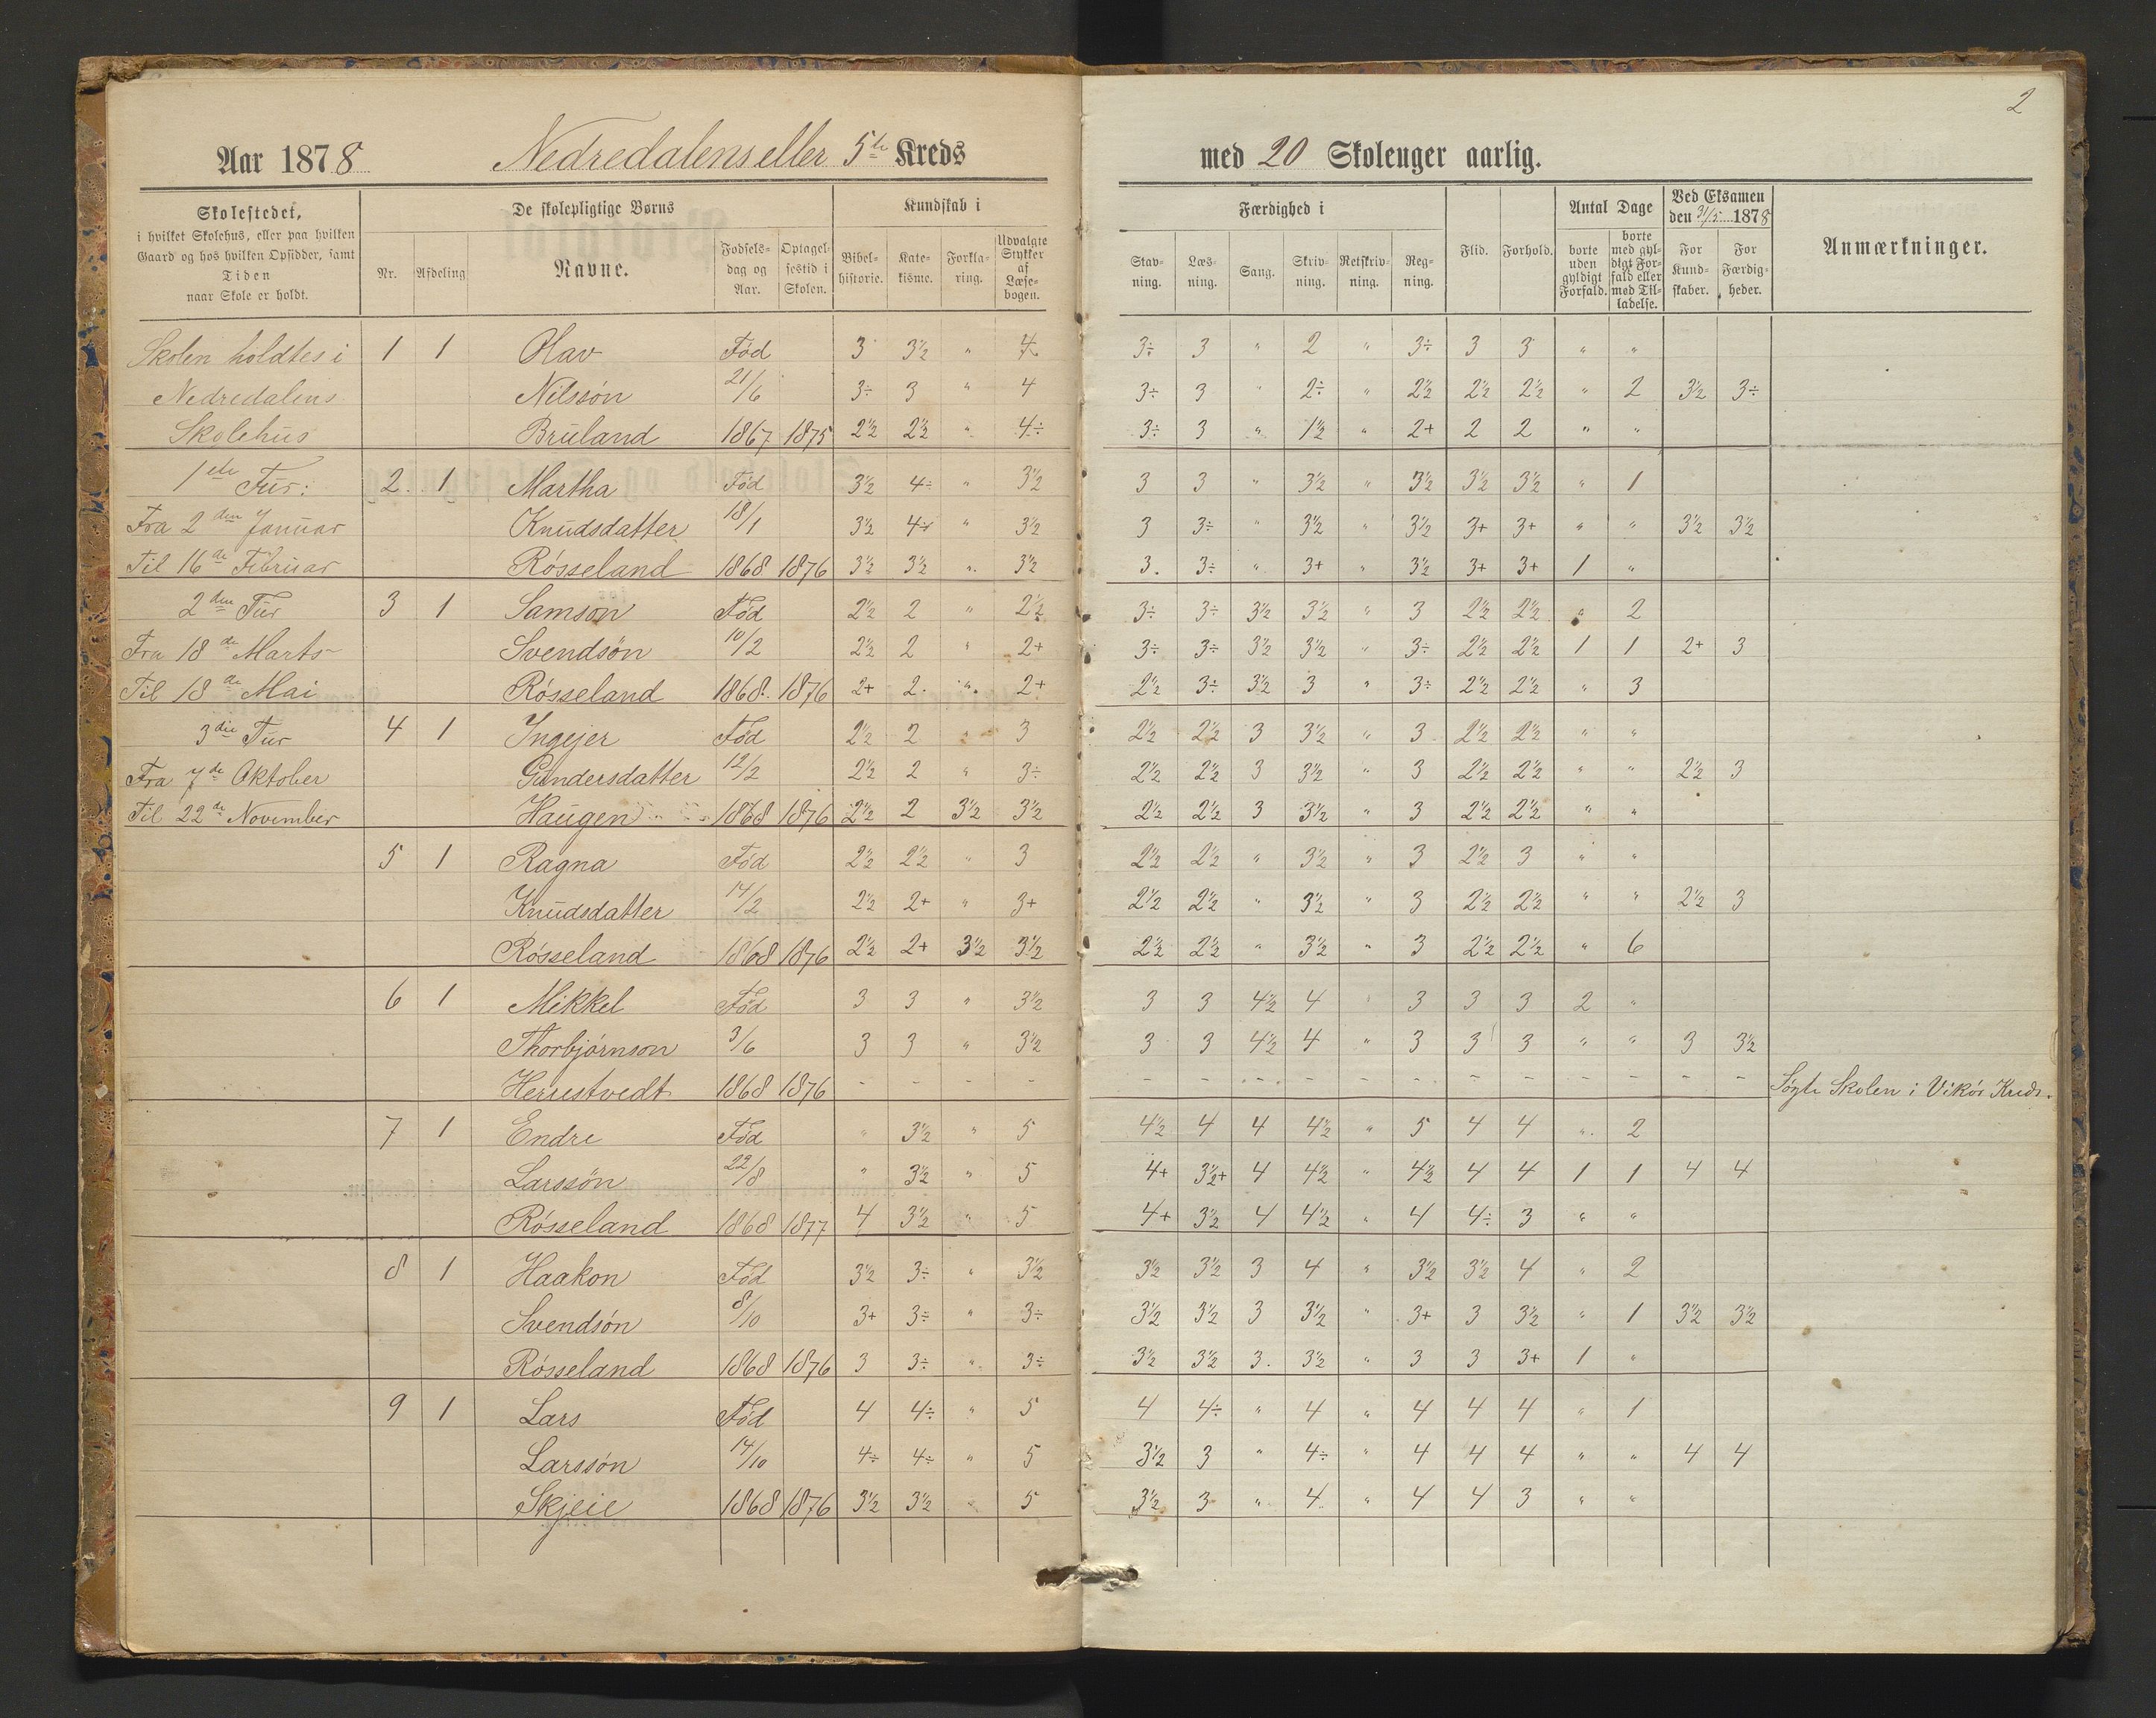 2
Aar 1878 Nedredalens eller 5te Kreds med 20 Skoleuger aarlig.
Skolestedet,
i hvilket Skolehus, eller paa hvilken
Gaard og hos hvilken Opsidder, samt
Tiden
naar Skole er holdt.
De skolepligtige Børns
Nr. Afdeling Navne. Fødsels-dag og Aar. Optagel-sestid i Skolen.
Kundskab i
Bibel-historie. Kate-kisme. Forkla-ring. Udvalgte Stykker af Læse-bogen.
Færdighed i
Stav-ning. Læs-ning. Sang. Skriv-ning. Retskriv-ning. Reg-ning.
Flid. Forhold.
Antal Dage
borte uden gyldigt Forfald. borte med gyl-digt For-fald eller med Til-ladelse.
Ved Eksamen den 31/5 1878
For Kund-skaber. For Færdig-heder.
Anmærkninger.
Skolen holdtes i 1 1 Olav Fød 3 3½ " 4 3÷ 3 " 2 " 3÷ 3 3 " "
Nedredalens Nilssön 21/6 3÷ 3 " 4 3÷ 3 " 2÷ " 2½ 2½ 2½ " 2 3½ 3÷
Skolehus Bruland 1867 1875 2½ 2½ " 4÷ 3÷ 3 " 1½ " 2+ 2 2 " "
1ste Tur: 2. 1 Martha Fød 3½ 4÷ " 3½ 3 3 " 3½ " 3½ 3½ 3½ " 1
Fra 2den Januar Knudsdatter 18/1 3½ 4÷ " 3½ 3 3÷ " 3½ " 3½ 3+ 3+ " " 3½ 3½
Til 16de Februar Rösseland 1868 1876 3½ 3½ " 3½ 3. 3÷ " 3+ " 3½ 3+ 3+ 1 "
2den Tur 3 1 Samson Fød 2½ 2 " 2½ 3÷ 3÷ 3½ 3½ " 3 2½ 2½ " 2
Fra 18de Marts Svendsön 10/2 2½ 2 " 2+ 3÷ 3÷ 3½ 3½ " 3÷ 2½ 2½ 1 1 2+ 3
Til 18de Mai Rösseland 1868. 1876 2+ 2. " 2+ 2½ 3÷ 3½ 3 " 3÷ 2½ 2½ " 3
3die Tur 4 1 Ingejer Fød 2½ 2 " 3 2½ 2½ 3 3½ " 3 2½ 2½ " "
Fra 7de Oktober Gundersdatter 12/2 2½ 2 " 3÷ 2½ 2½ 3 3½ " 3 2½ 2½ " " 2½ 3
Til 22de November Haugen 1868 1876 2½ 2 3½ 3½ 2½ 2½ 3 3½ " 3 2½ 2½ " "
5 1 Ragna Fød 2½ 2½ " 3 2½ 2½ " 3½ " 3 2½ 3 " "
Knudsdatter 14/2 2½ 2+ " 3+ 2½ 2½ " 3½ " 3 2½ 2½ " " 2½ 3
Rösseland 1868 1876 2½ 2+ 3½ 3½ 2½ 2½ " 3½ " 3 2½ 2½ " 6
6 1 Mikkel Fød 3 3 " 3½ 3 3 4½ 4 " 3 3 3 2 "
Thorbjörnson 3/6 3 3 " 3½ 3 3 4½ 4 " 3 3 3 " " 3 3½
Herrestvedt 1868 1876 - - - - - - - - - - - - - - - - Søgte Skolen i Vikör Kreds.
7 1 Endre Fød " 3½ " 5 4½ 4 4 4½ " 5 4 4 " 2
Larssön 22/8 " 3½ " 5 4+ 3½+ 4 4½ " 4½ 4 4 1 1 4 4
Rösseland 1868 1877 4 3½ " 5 4+ 3½ 4 4½ " 4 4÷ 3 " "
8 1 Haakon Fød 3½ 3÷ " 3½ 3½ 3½ 3 4 " 3½ 3½ 4 " 2
Svendsön 8/10 3+ 3÷ " 3÷ 3½ 3½ 3 3½ " 3+ 3 3½ " 1 3½ 3½
Rösseland 1868 1876 3 3÷ " 3÷ 3½ 3½ 3. 3½ " 3 3 3+ 1 "
9 1 Lars Fød 4 4÷ " 5 4 4÷ " 4 " 4 4 4 " 1
Larssön 14/10 4÷ 4÷ " 5 3½ 3 " 4÷ " 4 4 4 " " 4 4
Skjeie 1868 1876 3½ 3½ " 5 3½ 3 " 4 " 4 4 3 " "